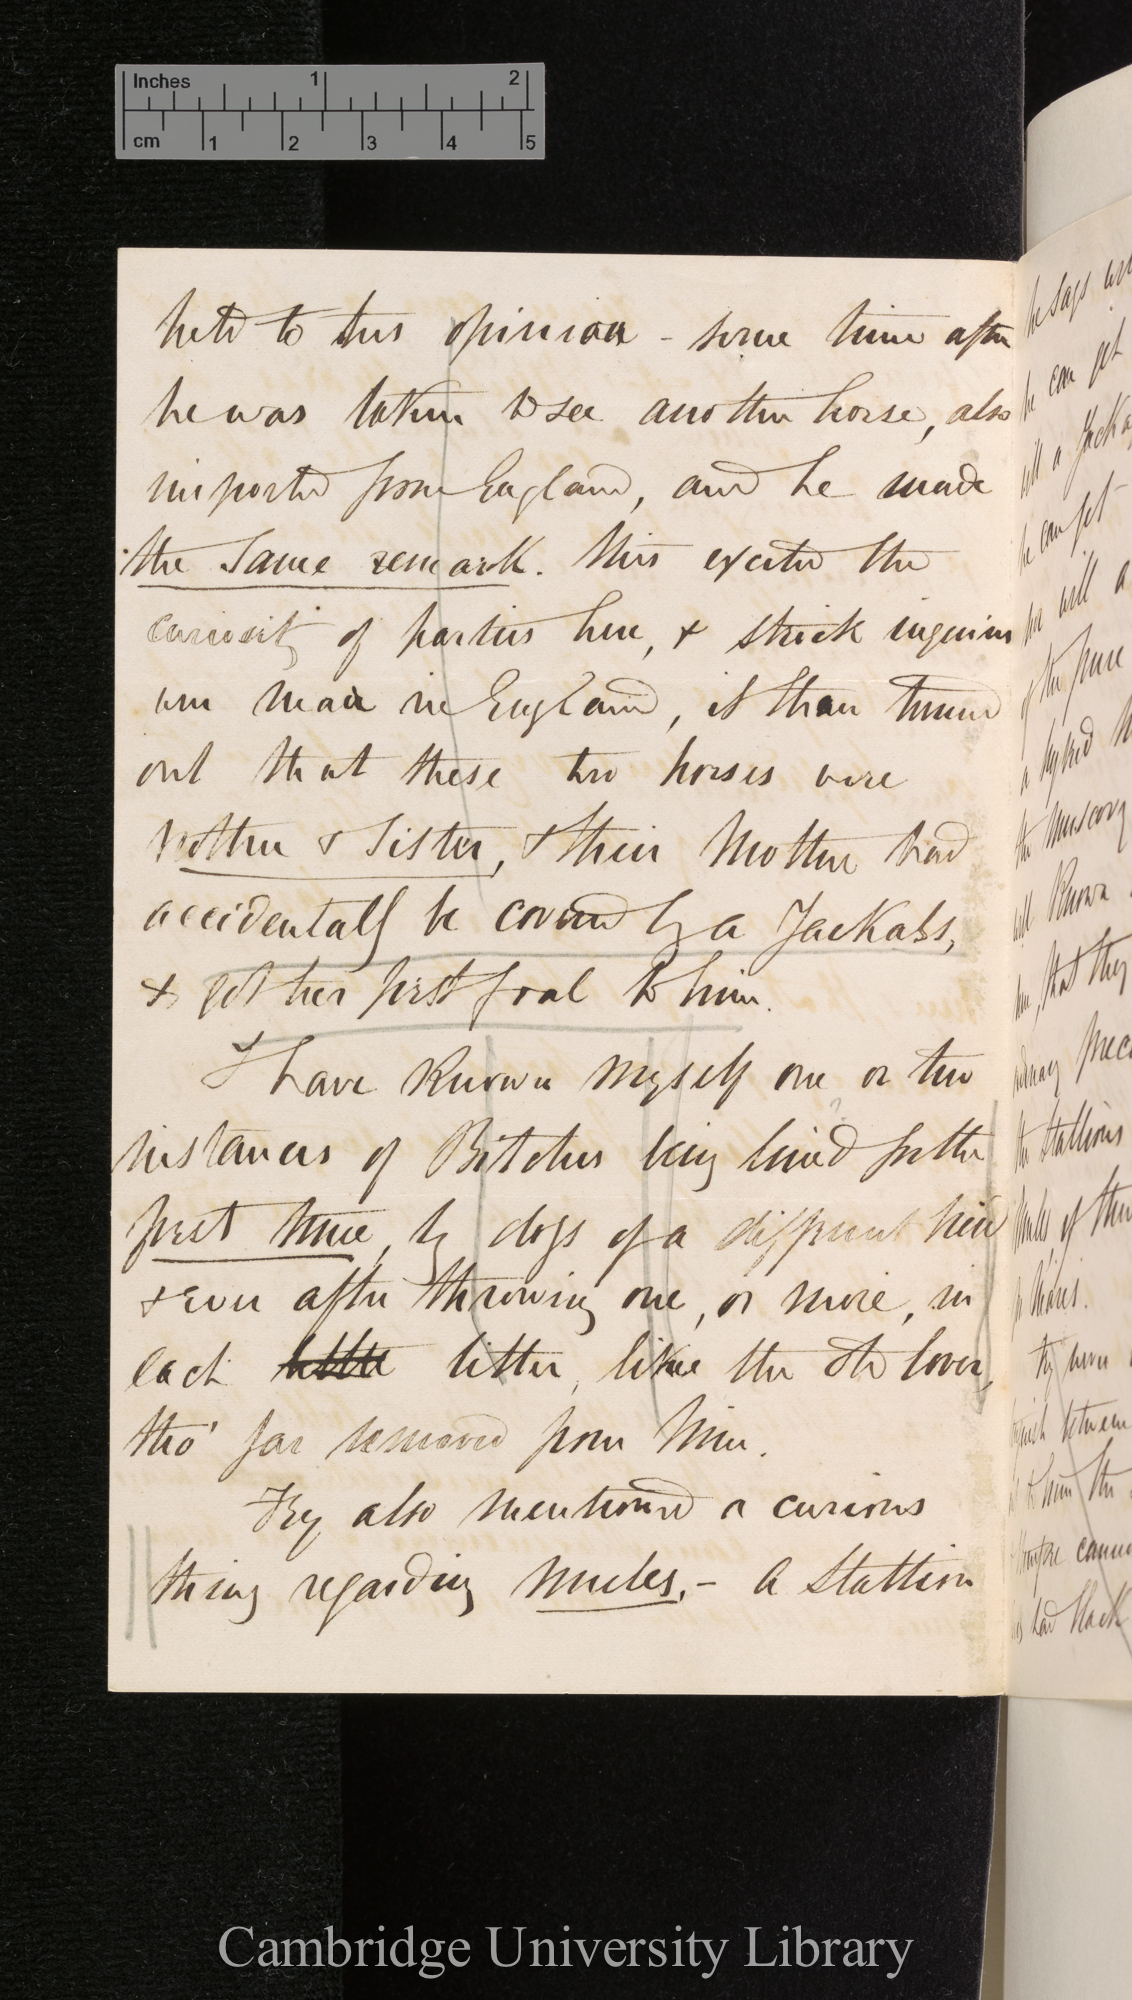 Inches 1 2
cm 1 2 3 4 5
held to this opinion - some time after
he was taken to see another horse, also
imported from England, and he made
the same remark. This excited the
curiosity of parties here, & strick inquiries
were made in England, it than turned
out that these two horses were
brother & sister, & their Mother had
accidentally be covered by a Jackass,
& got her first foal to him.
I have known myself one or two
instances of Bitches being lined for the
first time, by dogs of a different kind
& ever after throwing one, or more, in
each litter, like the old lover,
tho' far removed from him.
Fry also mentioned a curious
thing regarding mules. - A Stallion
he says
he can get
will a Jacka
he can get
he will a
of the pure
a hybrid
the muscovy
well known
that they
prec
the stallions
mules, of them
between
to him the
cannot
had black
Cambridge University Library